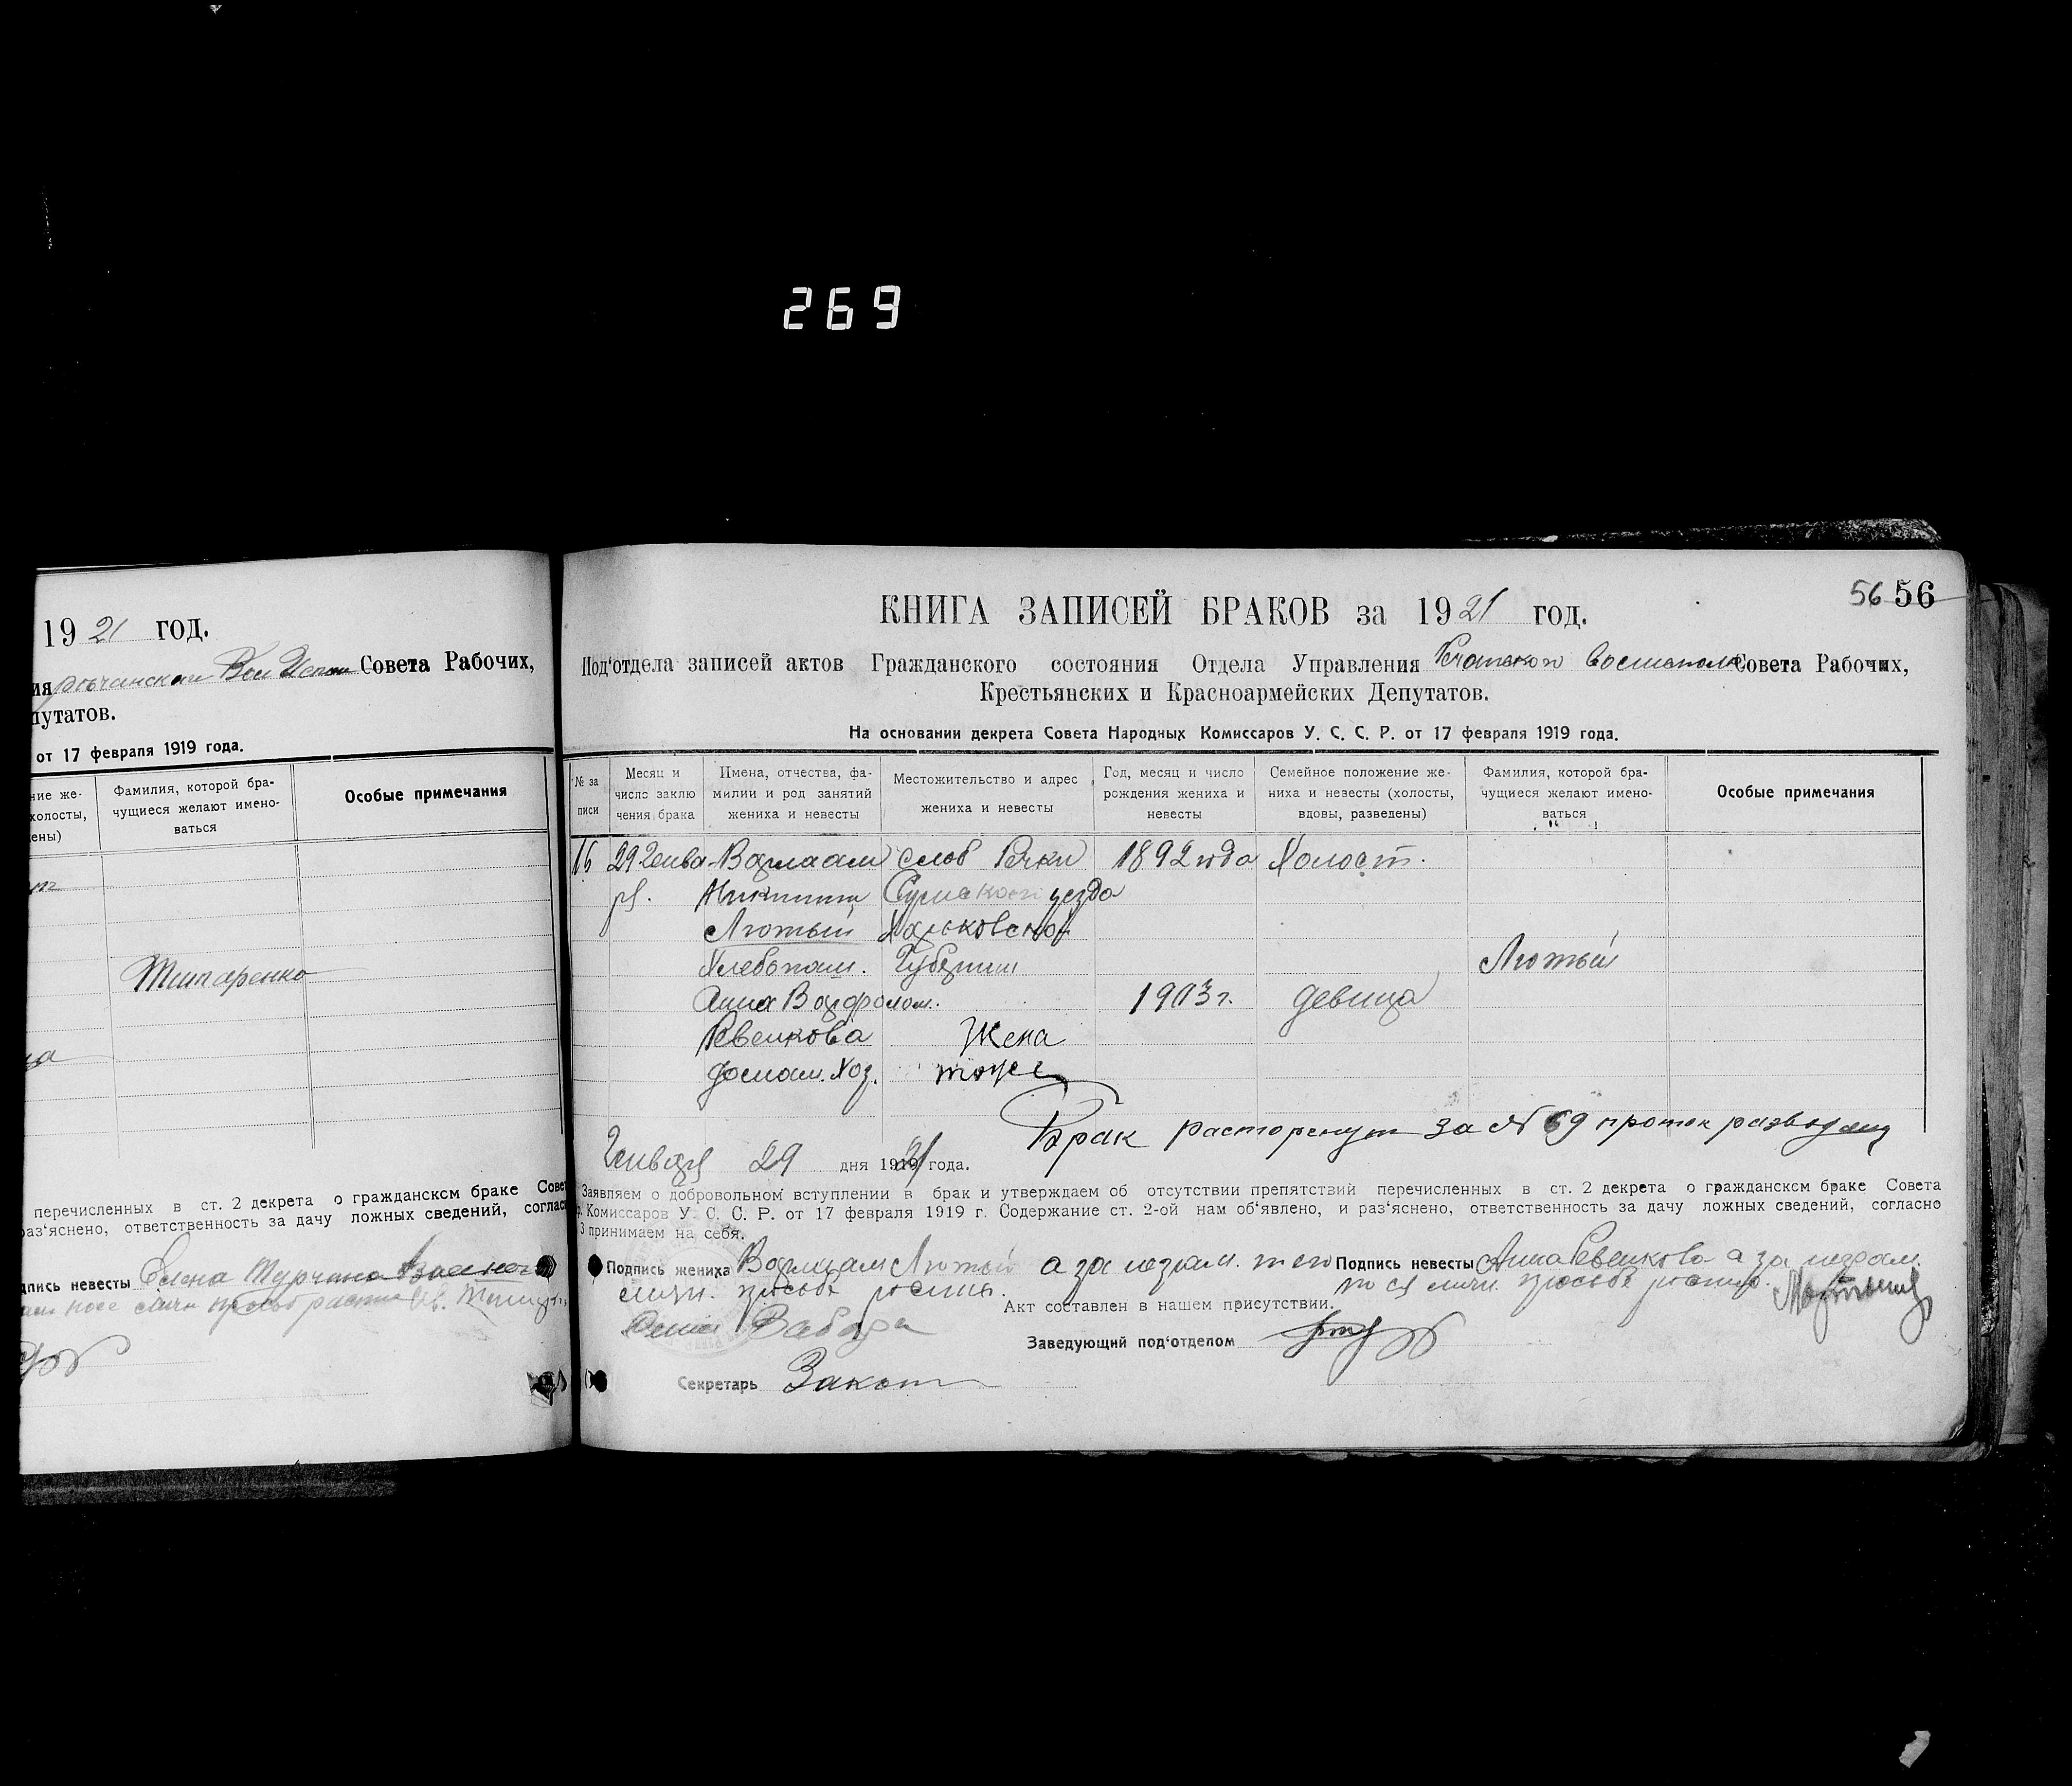 269
19 21 год.
Совета Рабочих,
путатов.
от 17 февраля 1919 года.
ние же-
холосты,
ены)
Фамилия, которой бра-
чущиеся желают имено-
ваться
Особые примечания
перечисленных в ст. 2 декрета о гражданскcм браке Совет
раз'яснено, ответственность за дачу ложных сведений, соглас
дпись невесты Елена Турчина
56 56
КНИГА ЗАПИСЕЙ БРАКОВ за 19 21 год.
Под'отдела записей актов Гражданского состояния Отдела Управления Совета Рабочих,
Крестьянских и Красноармейских Депутатов.
На основании декрета Совета Народных Комиссаров У. С. С. Р. от 17 февраля 1919 года.
№ за
писи
Месяц и
число заклю
чения брака
Имена, отчества, фа-
милии и род занятий
жениха и невесты
Местожительство и адрес
жениха и невесты
Год, месяц и число
рождения жениха и
невесты
Семейное положение же-
ниха и невесты (холосты,
вдовы, разведены)
Фамилия, которой бра-
чущиеся желают имено-
ваться
Особые примечания
16 29 Генва- Варлаам слоб Речки 1892 года Холост.
ря. Никитин Сумского уезда
Лютый Харьковской
Хлебопаш. Губернии Лютый
Анна Варфолом. 1903 г. девица
Ревенкова Жена
домаш. Хоз. тоже
Брак расторгнут за № 69 проток
Генваря 29 дня 1919 21 года.
Заявляем о добровольном вступлении в брак и утверждаем об отсутствии препятствий перечисленных в ст. 2 декрета о гражданскcм браке Совета
р. Комиссаров У. С. С. Р. от 17 февраля 1919 г. Содержание ст. 2-ой нам об'явлено, и раз'яснено, ответственность за дачу ложных сведений, согласно
3 принимаем на себя.
Подпись жениха Варлаам Лютый а за неграм. его Подпись невесты Анна Ревенкова а за неграм.
личн. просьбе по ея личн. просьбе
Акт составлен в нашем присутствии.
Заведующий под'отделом
Секретарь